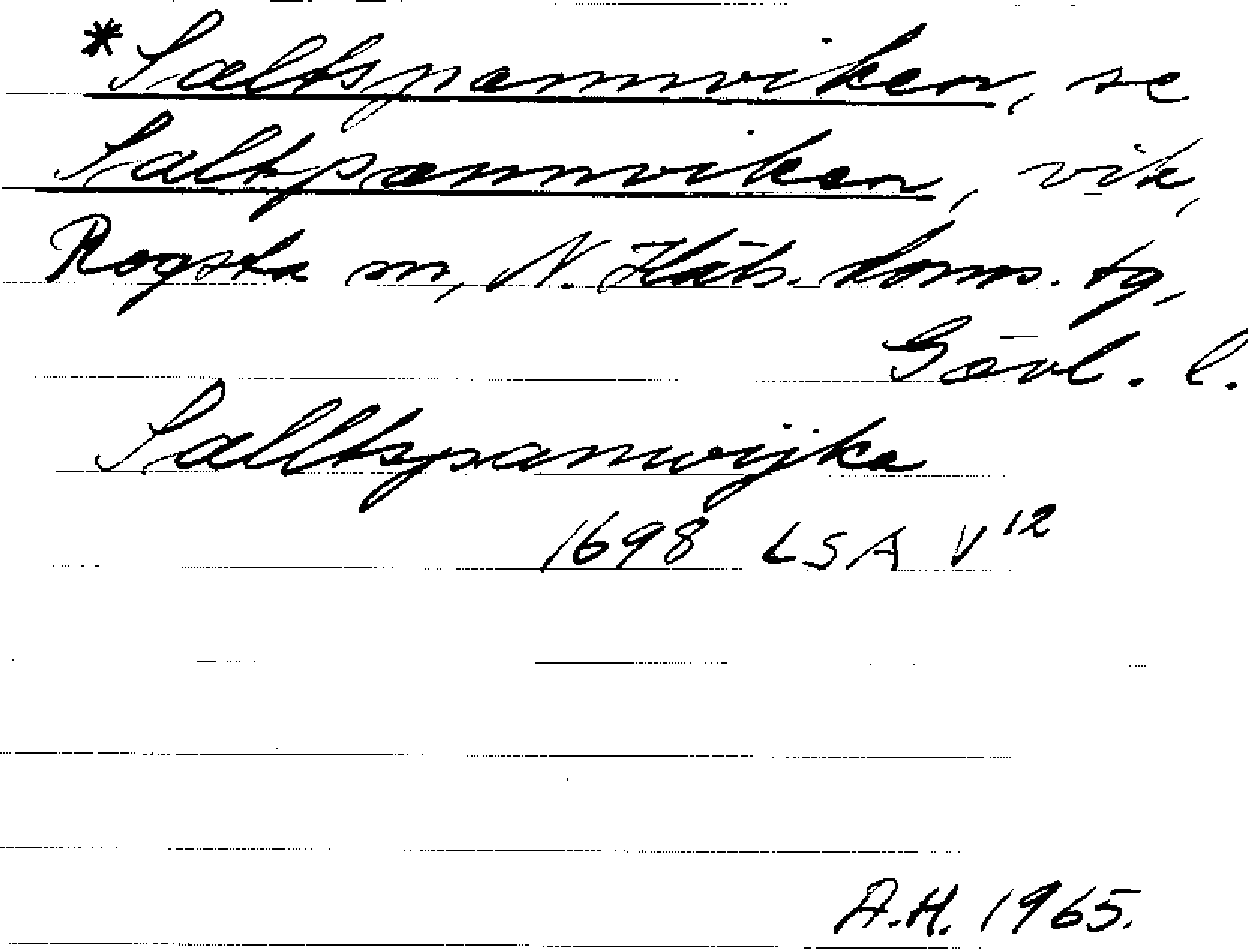 *Saltspannviken, se
Saltpannviken, vik,
Rogsta sn, N. Häls. doms. tg,
Gävl. l.
Salltspanwijka
1698 LSA V 12
A.H. 1965.